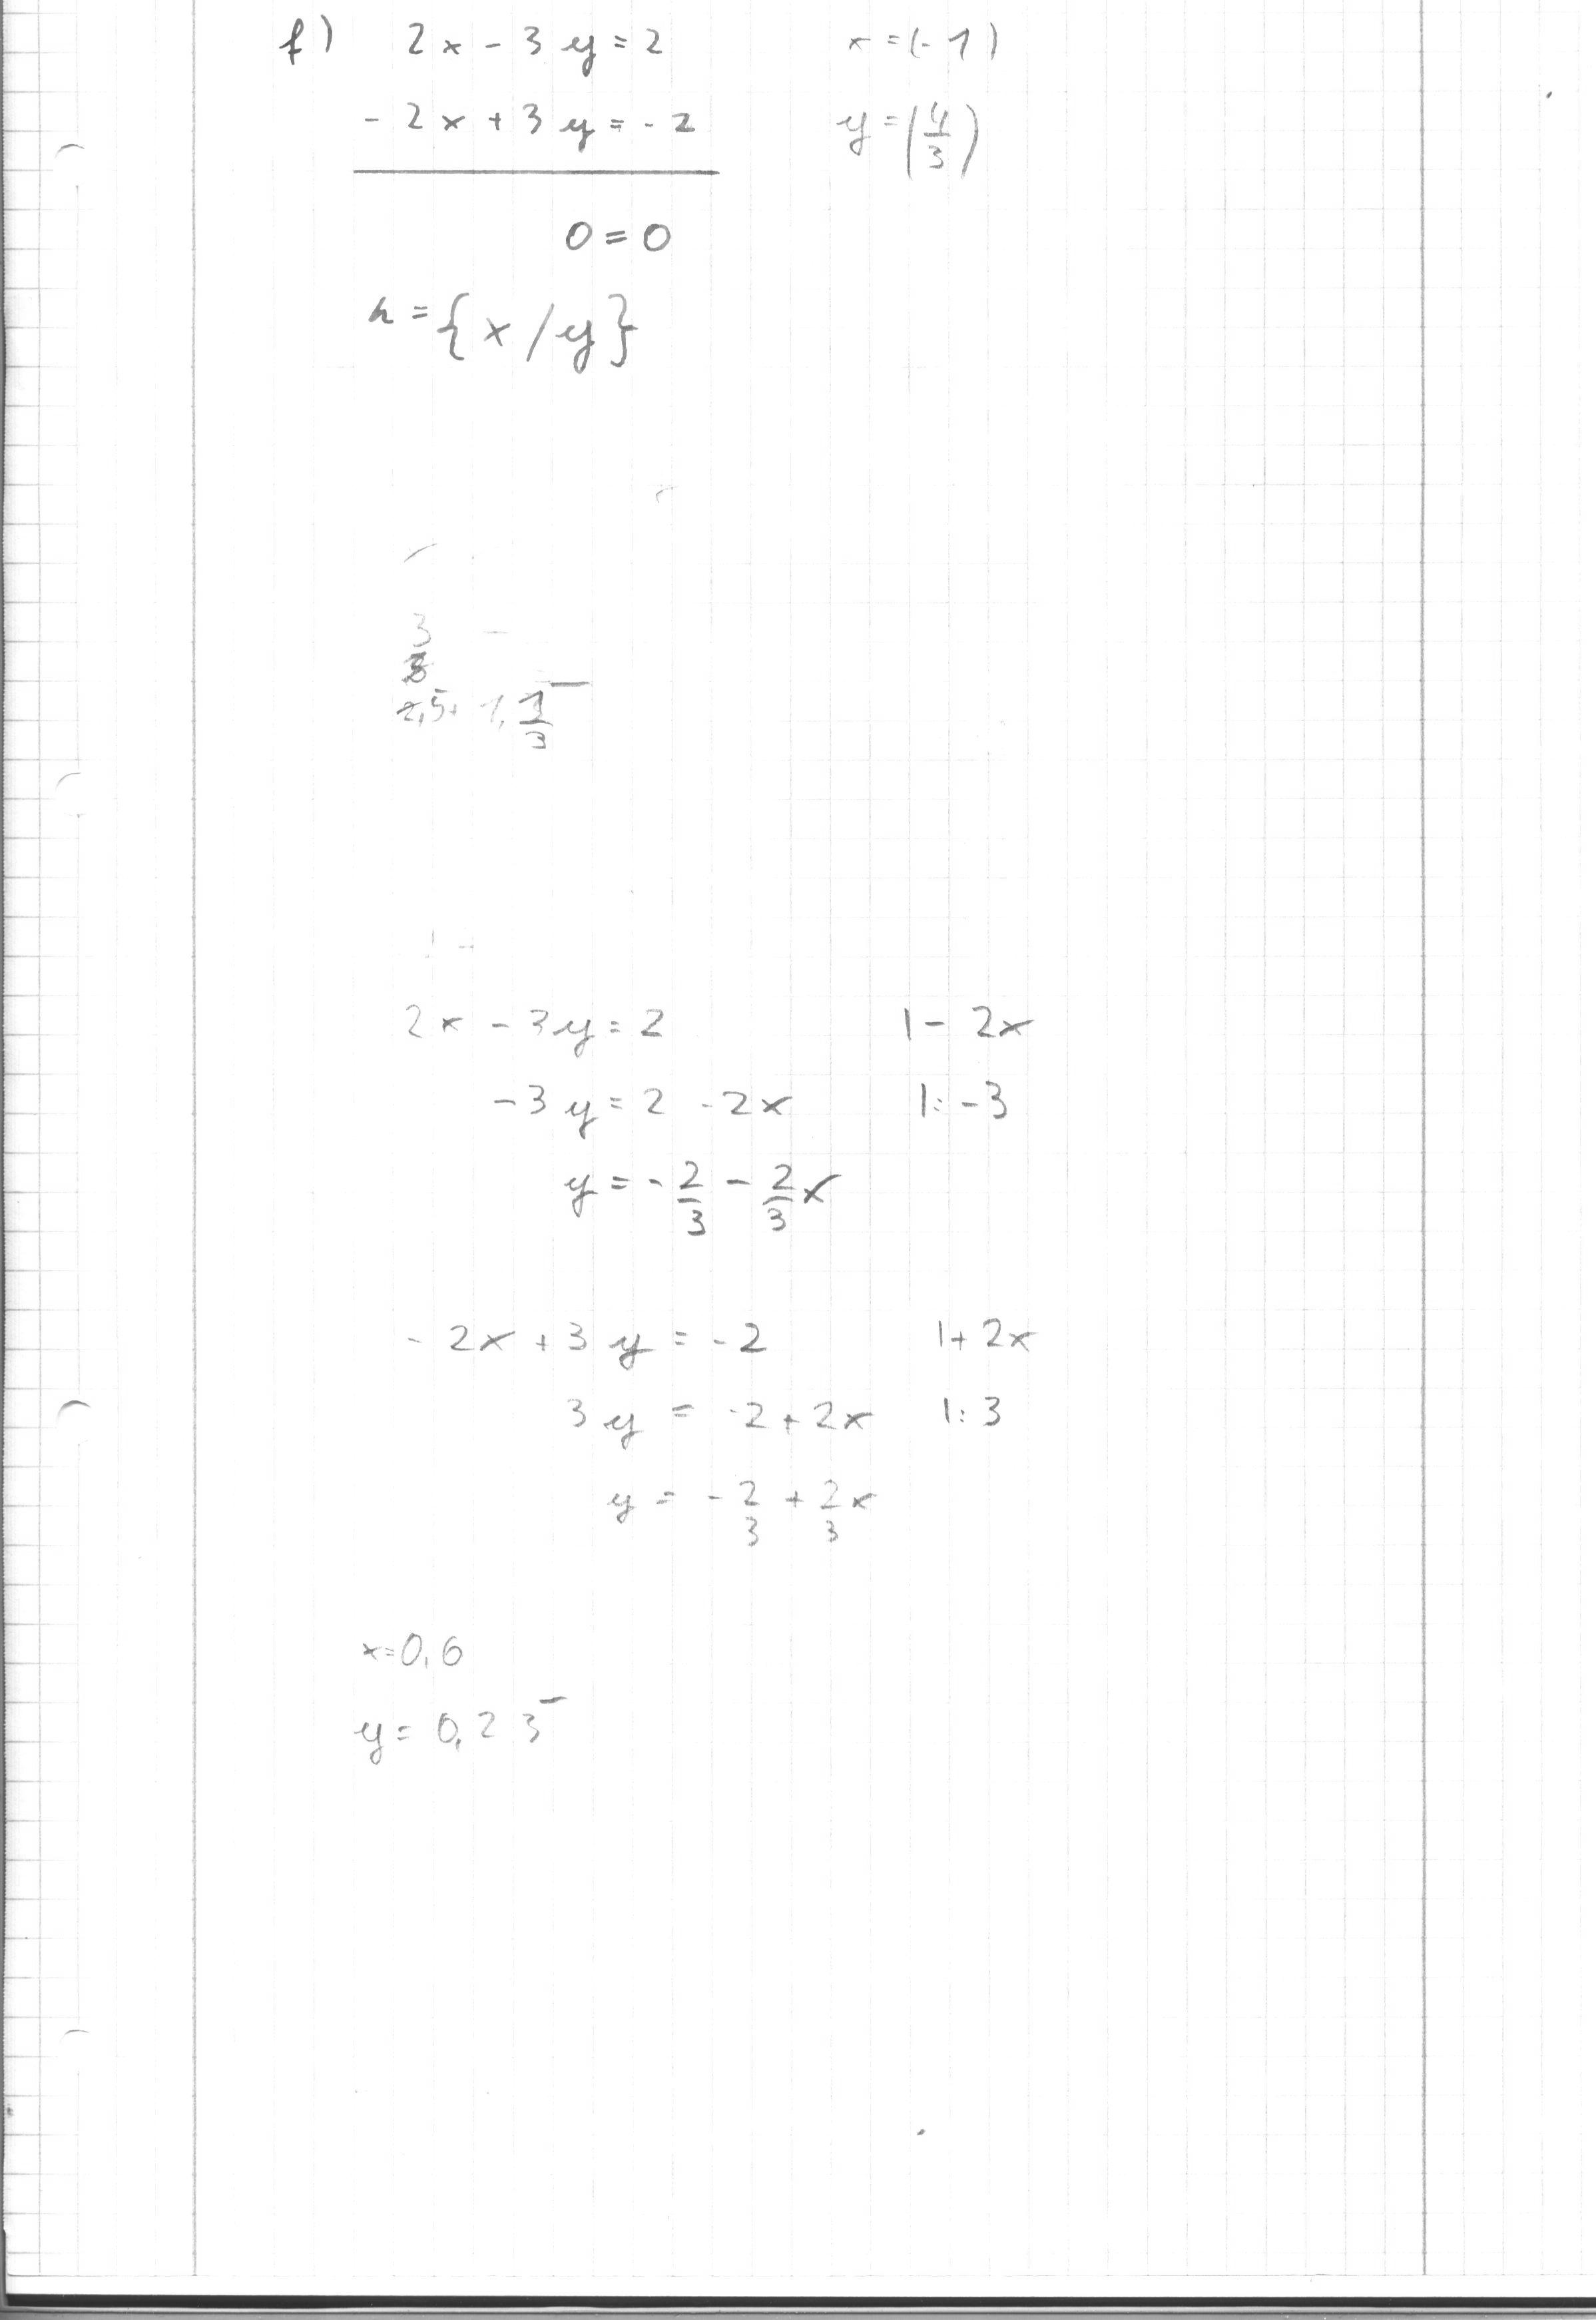 f) 2x - 3y = 2 x = (-1)
- 2x + 3y = - 2 y = (4/3)
0 = 0
= {x/y}
3
1/3
2x - 3y = 2 |- 2x
-3y = 2 - 2x |: -3
y = - 2/3 - 2/3 x
- 2x + 3y = - 2 |+ 2x
3y = -2 + 2x |: 3
y = - 2/3 + 2/3 x
x = 0,6
y = 0,23